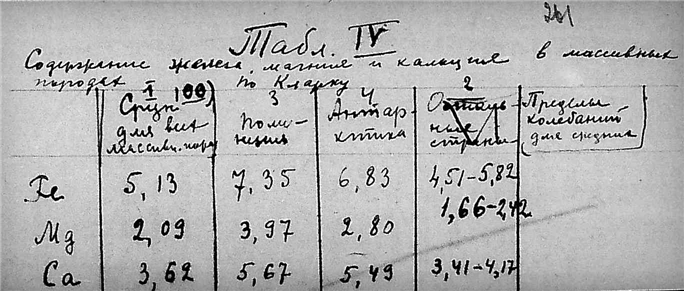 261
Табл. IV
Содержание железа, магния и кальция в массивных
породах по Кларку
1 100) 3 4 2
Средн. Поли- Антар- Осталь- Пределы
для всех незия ктика ные колебаний
массивн. пород страны для средних
Fe 5,13 7,35 6,83 4,51-5,82
Mg 2,09 3,97 2,80 1,66-2,42
Ca 3,62 5,67 5,49 3,41-4,17